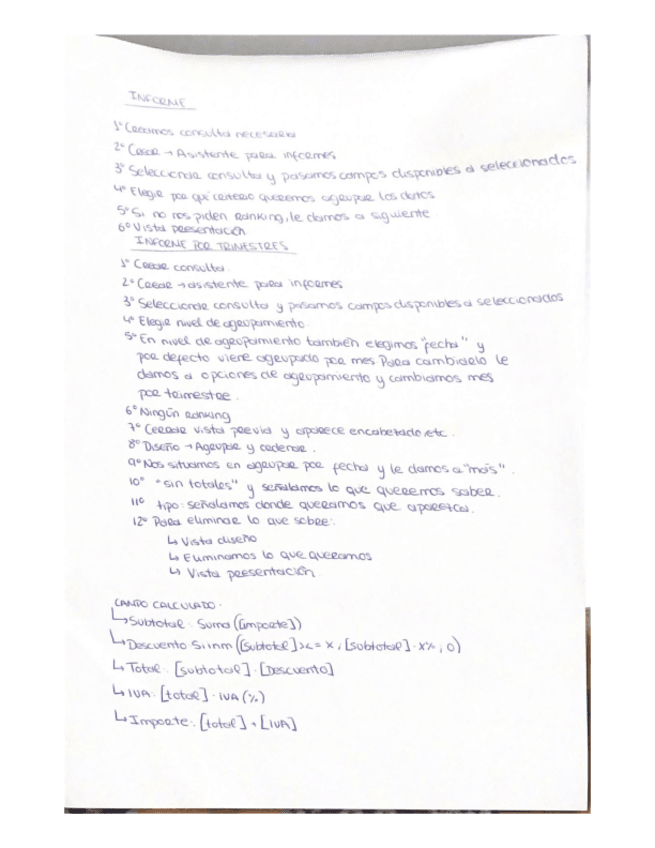 INFORME
1º Creamos consulta necesaria
2º Crear → Asistente para informes
3º Seleccionar consulta y pasamos campos disponibles a seleccionados
4º Elegir por qué criterio queremos agrupar los datos
5º Si no nos piden ranking, le damos a siguiente
6º Vista presentación
INFORME POR TRIMESTRES
1º Crear consulta.
2º Crear → asistente para informes
3º Seleccionar consulta y pasamos campos disponibles a seleccionados
4º Elegir nivel de agrupamiento.
5º En nivel de agrupamiento también elegimos "fecha" y
por defecto viene agrupado por mes Para cambiarlo le
damos a opciones de agrupamiento y cambiamos mes
por trimestre.
6º Ningún ranking
7º Cerrar vista previa y aparece encabezado, etc.
8º Diseño → Agrupar y ordenar.
9º Nos situamos en agrupar por fecha y le damos a "más".
10º "sin totales" y señalamos lo que queremos saber.
11º tipo: señalamos donde queramos que aparezca.
12º Para eliminar lo que sobre:
↳ Vista diseño
↳ Eliminamos lo que queramos
↳ Vista presentación
CAMPO CALCULADO:
↳ Subtotal: Suma ([importe])
↳ Descuento Siinm ([Subtotal] >< = x ; [subtotal] · x% ; 0)
↳ Total: [subtotal] · [Descuento]
↳ IVA: [total] · IVA (%)
↳ Importe: [total] + [IVA]